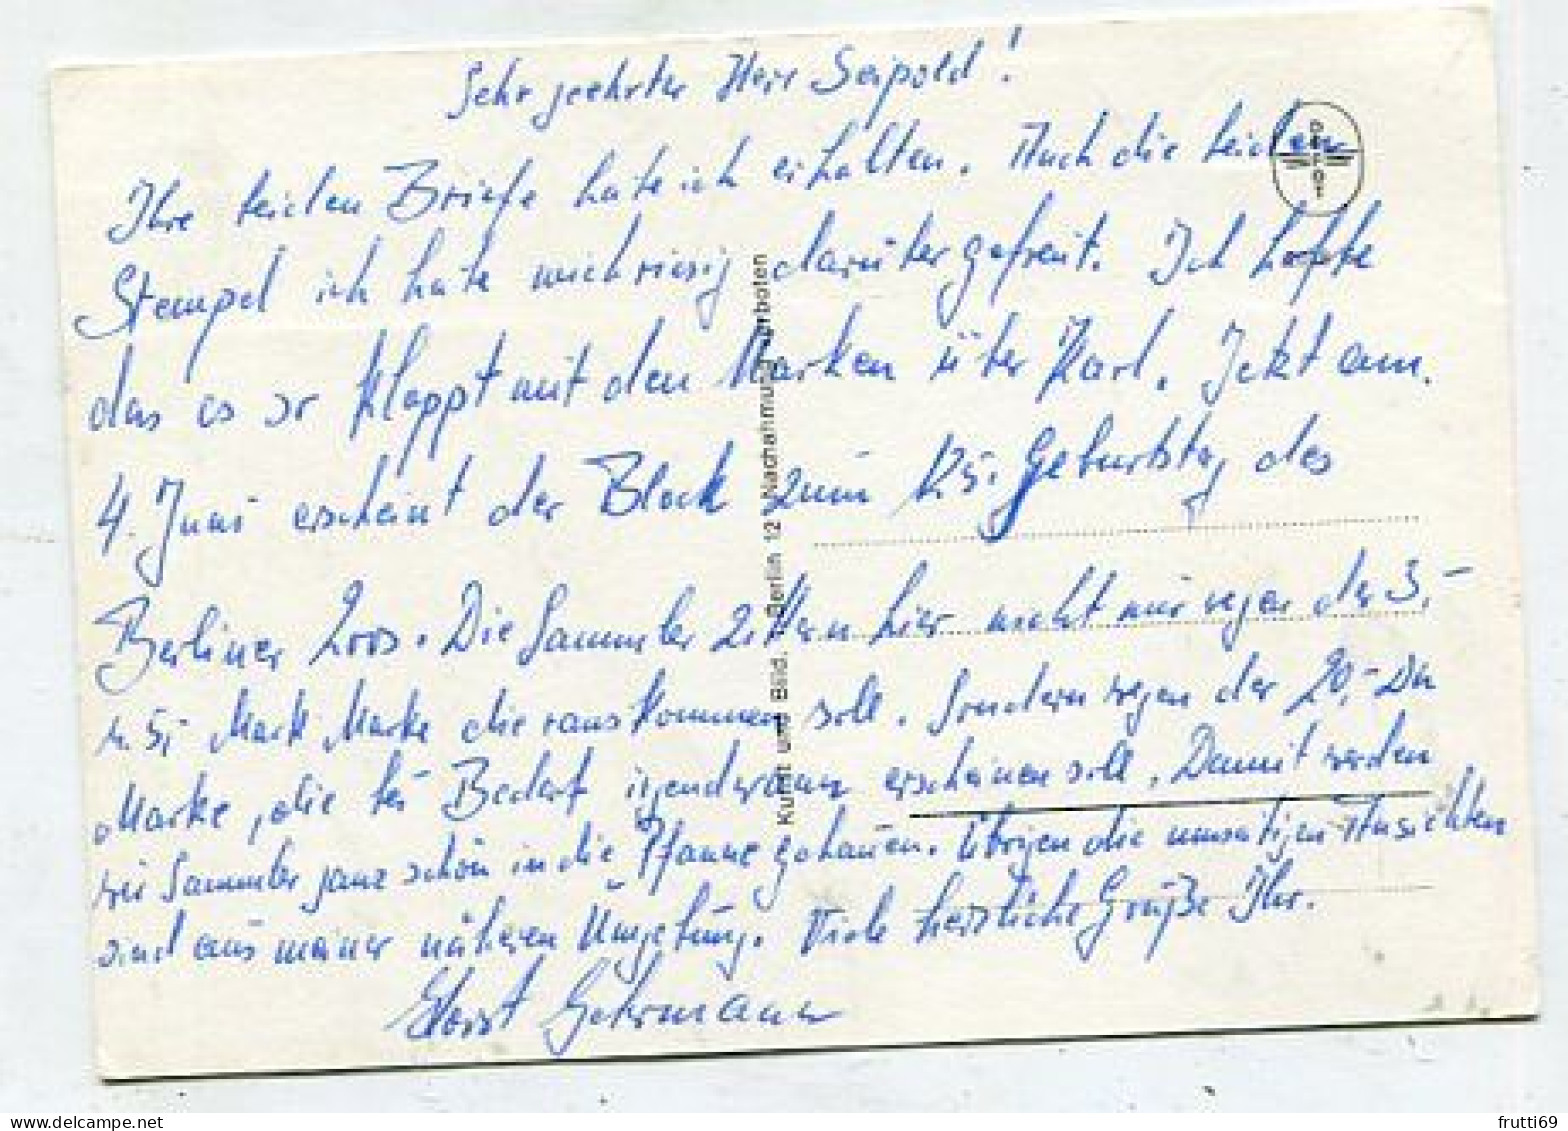 Sehr geehrter Herr Seipold!
Ihre beiden Briefe habe ich erhalten. Auch die beiden
Stempel ich habe mich riesig darüber gefreut. Ich hoffe
das es so klappt mit den Marken über Karl. Jetzt am.
4. Juni erscheint der Block zum 125. Geburtstag des
Berliner Zoos. Die Sammler zittern hier nicht nur wegen der 3,-
u. 5,- Mark Marke die rauskommen soll. Sondern wegen der 20,- DM
Marke, die bei Bedarf irgendwann erscheinen soll. Damit werden
wir Sammler ganz schön in die Pfanne gehauen. Übrigen die umseitigen Ansichten
sind aus meiner näheren Umgebung. Viele herzliche Grüße Ihr.
Horst Gehrmann
Kunst und Bild, Berlin 12 Nachahmung verboten
frutti69